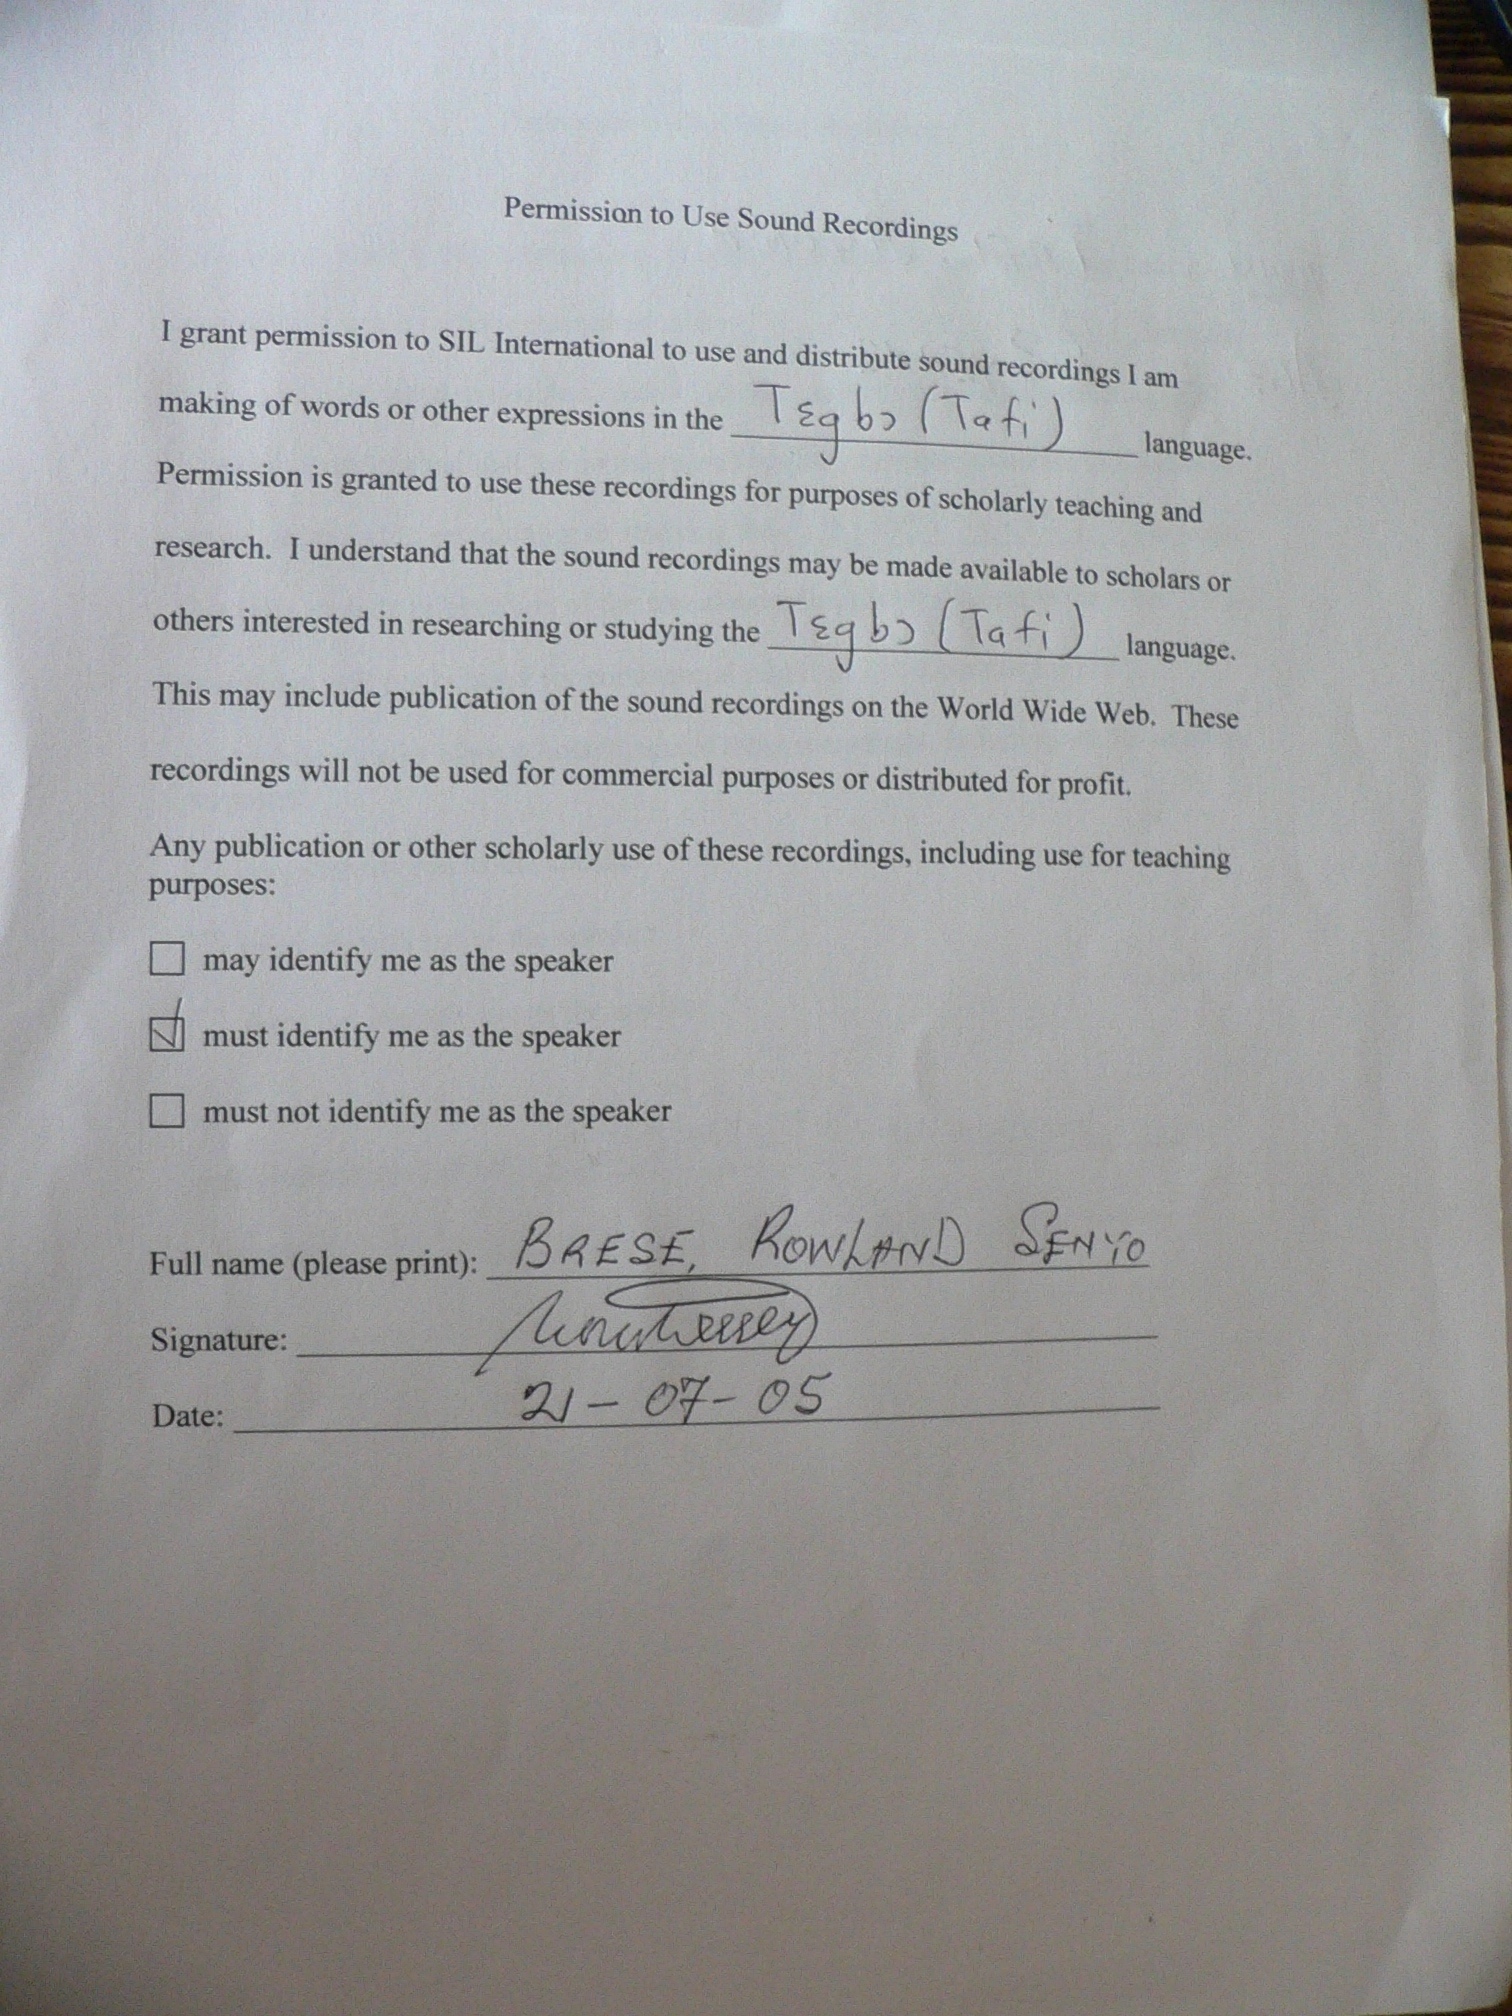 Permission to Use Sound Recordings
I grant permission to SIL International to use and distribute sound recordings I am
making of words or other expressions in the Tɛgbɔ (Tafi) language.
Permission is granted to use these recordings for purposes of scholarly teaching and
research. I understand that the sound recordings may be made available to scholars or
others interested in researching or studying the Tɛgbɔ (Tafi) language.
This may include publication of the sound recordings on the World Wide Web. These
recordings will not be used for commercial purposes or distributed for profit.
Any publication or other scholarly use of these recordings, including use for teaching
purposes:
☐ may identify me as the speaker
☑ must identify me as the speaker
☐ must not identify me as the speaker
Full name (please print): BRESE, ROWLAND SENYO
Signature:
Date: 21-07-05